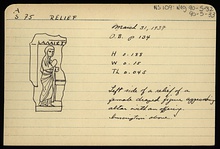 A
S 75 RELIEF
NS 109: Neg 90-5-32
90-5-33
March 31, 1938
O.B. p 134
H 0.188
W 0.15
Th 0.045
Left side of a relief of a
female draped figure approaching
altar with an offering
Inscription above.